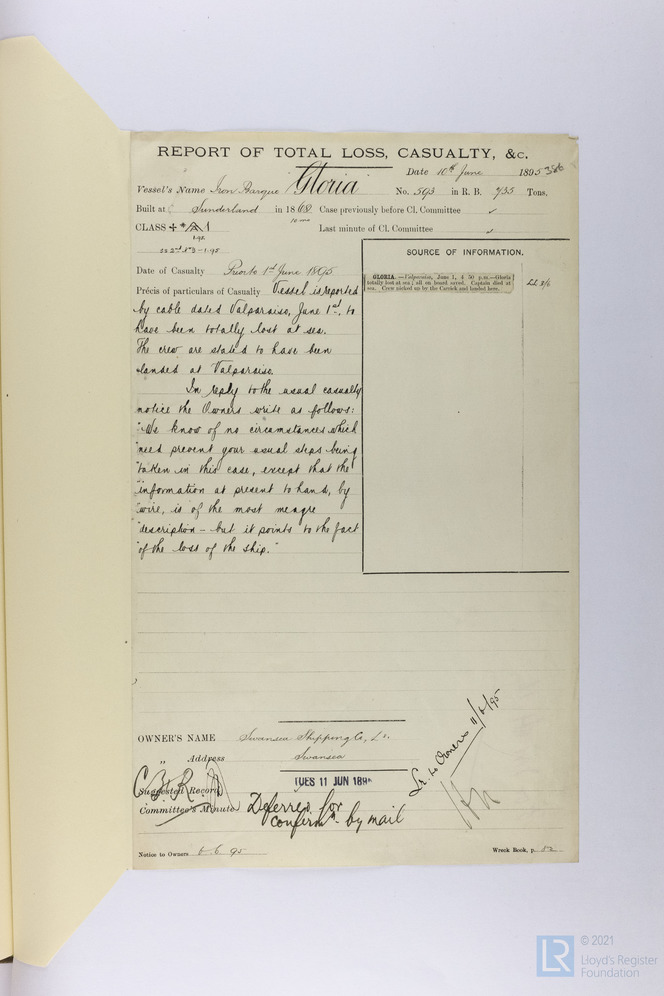 REPORT OF TOTAL LOSS, CASUALTY, &c.
Date 10th June 1895
Vessel's Name Iron Barque "Gloria" No. 593 in R. B. 735 Tons.
Built at Sunderland in 1868 Case previously before Cl. Committee ✓
10 mo
CLASS Last minute of Cl. Committee ✓
1.95
SS 2nd No3-1.95
SOURCE OF INFORMATION.
Date of Casualty Prior to 1st June 1895
GLORIA.—Valparaiso, June 1, 4 50 p.m.—Gloria
totally lost at sea; all on board saved. Captain died at
sea. Crew picked up by the Carrick and landed here.
LL 3/6
Précis of particulars of Casualty Vessel is reported
by cable dated Valparaiso, June 1st, to
have been totally lost at sea.
The crew are stated to have been
landed at Valparaiso.
In reply to the usual casualty
notice the Owners write as follows:
"We know of no circumstances which
"need prevent your usual steps being
"taken in this case, except that the
"information at present to hand, by
"wire, is of the most meagre
"description – but it points to the fact
"of the loss of the ship."
OWNER'S NAME Swansea Shipping Co, Ld.
„ Address Swansea
Lr. to Owners 11/6/95
TUES 11 JUN 1895
Suggested Record
Committee's Minute Deferred for
confirmn. by mail
Notice to Owners 6.6.95
Wreck Book, p. 82
© 2021
LR
Lloyd's Register
Foundation